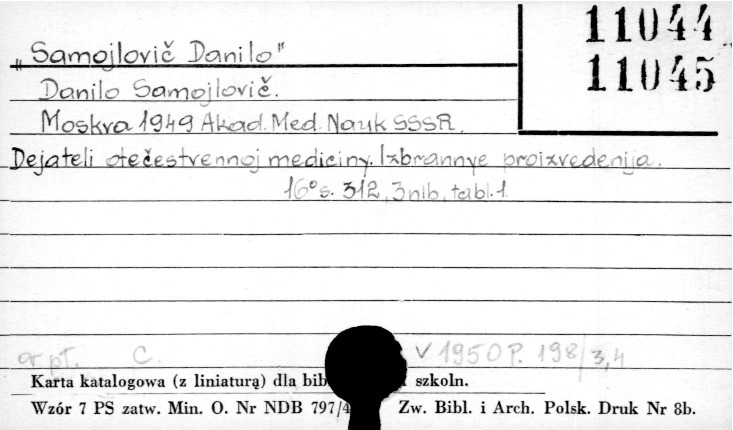 11044
11045
"Samojlovič Danilo"
Danilo Samojlovič.
Moskva 1949 Akad. Med. Nauk SSSR.
Dejateli otečestvennoj mediciny. Izbrannye proizvedenija.
16° s. 312, 3 nlb, tabl. 1.
pt. C. V 1950 P. 198/3,4
Karta katalogowa (z liniaturą) dla bib szkoln.
Wzór 7 PS zatw. Min. O. Nr NDB 797/4 Zw. Bibl. i Arch. Polsk. Druk Nr 8b.